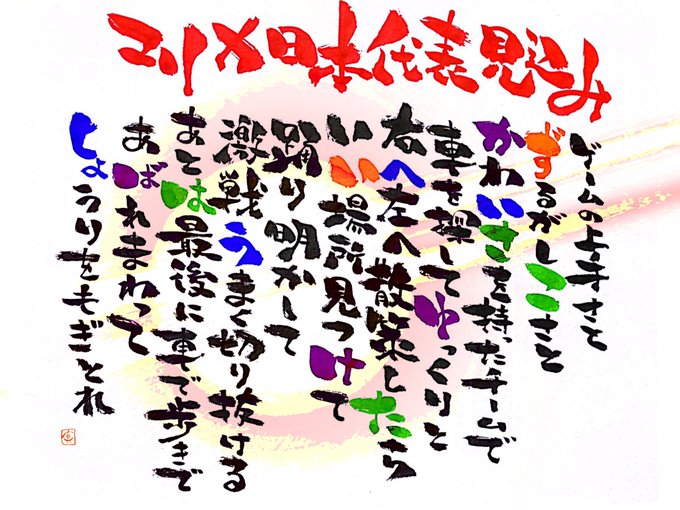 コリメ日本代表見込み
ゲームの上手さと
ずるがしこさと
かわいさを持ったチームで
車を探してゆっくりと
右へ左へ散策したら
いい場所見つけて
踊り明かして
激戦うまく切り抜ける
あとは最後に車で歩きで
あばれまわって
しょうりをもぎとれ